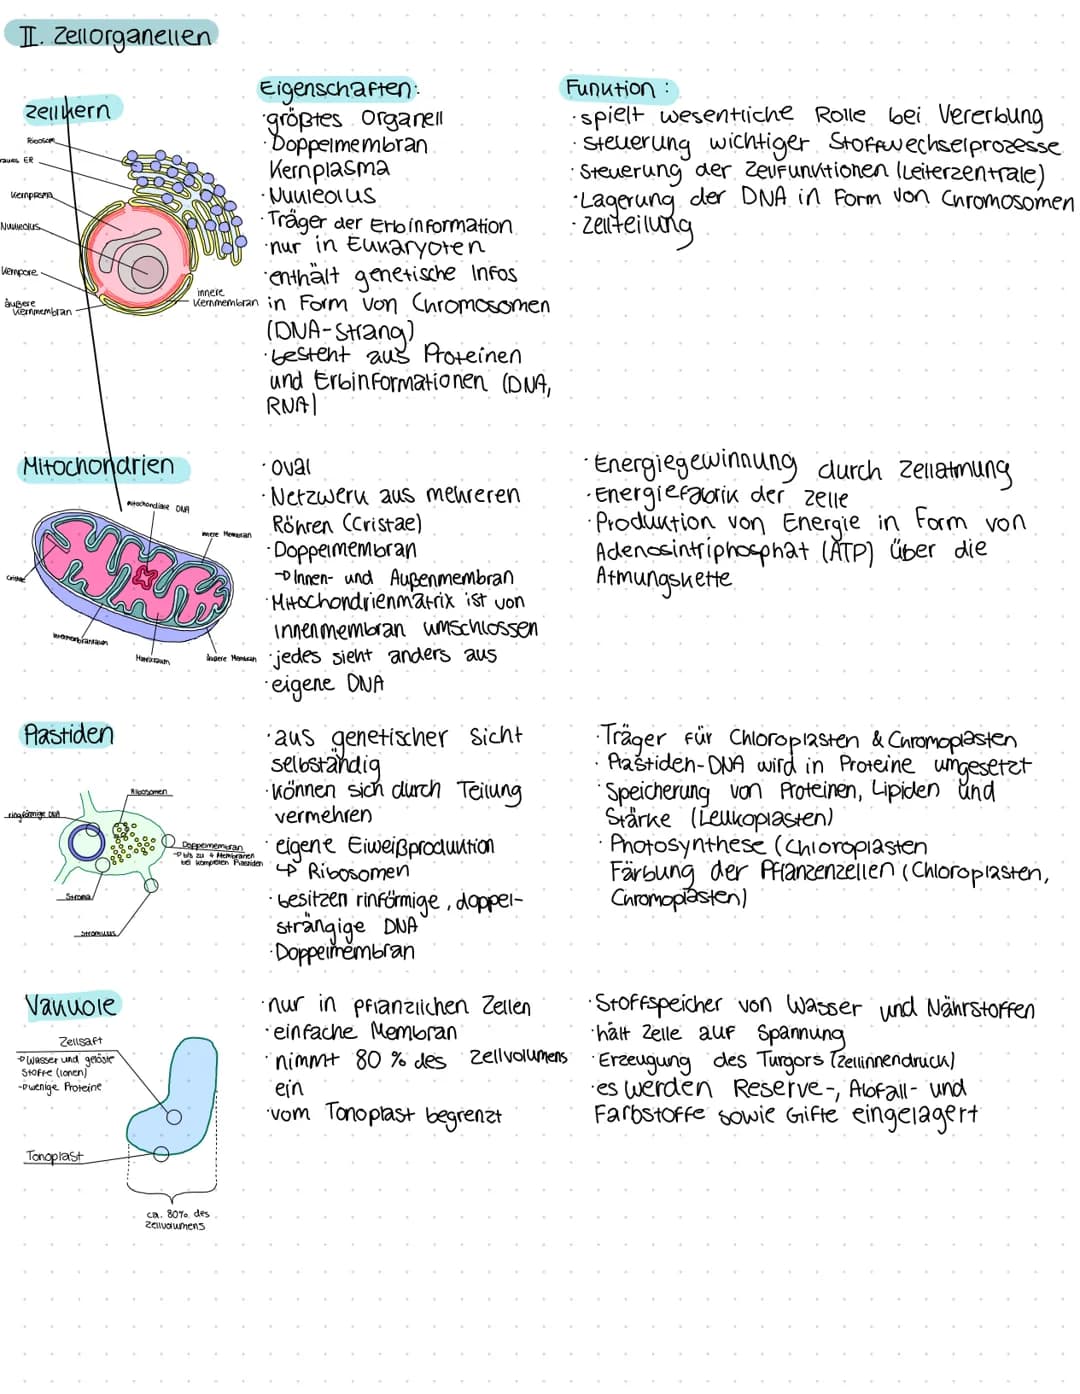 II. Zellorganellen
Zellkern
Ribosom
raues ER
Kernplasma
Nukleolus
Kernpore
äußere
Kernmembran
innere
Kernmembran
Eigenschaften:
·größtes Organell
·Doppelmembran
Kernplasma
·Nukleolus
·Träger der Erbinformation
·nur in Eukaryoten
·enthält genetische Infos
in Form von Chromosomen
(DNA-Strang)
·besteht aus Proteinen
und Erbinformationen (DNA,
RNA)
Funktion:
·spielt wesentliche Rolle bei Vererbung
·Steuerung wichtiger Stoffwechselprozesse
·Steuerung der Zellfunktionen (Leiterzentrale)
·Lagerung der DNA in Form von Chromosomen
·Zellteilung
Mitochondrien
mitochondiale DNA
innere Membran
Cristae
Intermembranraum
Matrixraum
äußere Membran
·oval
·Netzwerk aus mehreren
Röhren (Cristae)
·Doppelmembran
→Innen- und Außenmembran
·Mitochondrienmatrix ist von
innenmembran umschlossen
·jedes sieht anders aus
·eigene DNA
·Energiegewinnung durch Zellatmung
·Energiefabrik der Zelle
·Produktion von Energie in Form von
Adenosintriphosphat (ATP) über die
Atmungskette
Plastiden
Ribosomen
ringförmige DNA
Doppelmembran
→bis zu 4 Membranen
bei komplexen Plastiden
Stroma
Stromulus
·aus genetischer Sicht
selbständig
·können sich durch Teilung
vermehren
·eigene Eiweißproduktion
↳ Ribosomen
·besitzen rinförmige, doppel-
strängige DNA
·Doppelmembran
·Träger für Chloroplasten & Chromoplasten
·Plastiden-DNA wird in Proteine umgesetzt
·Speicherung von Proteinen, Lipiden und
Stärke (Leukoplasten)
·Photosynthese (Chloroplasten
Färbung der Pflanzenzellen (Chloroplasten,
Chromoplasten)
Vakuole
Zellsaft
→Wasser und gelöste
Stoffe (Ionen)
→wenige Proteine
Tonoplast
ca. 80% des
Zellvolumens
·nur in pflanzlichen Zellen
·einfache Membran
·nimmt 80 % des Zellvolumens
ein
·vom Tonoplast begrenzt
·Stoffspeicher von Wasser und Nährstoffen
·hält Zelle auf Spannung
·Erzeugung des Turgors (Zellinnendruck)
·es werden Reserve-, Abfall- und
Farbstoffe sowie Gifte eingelagert